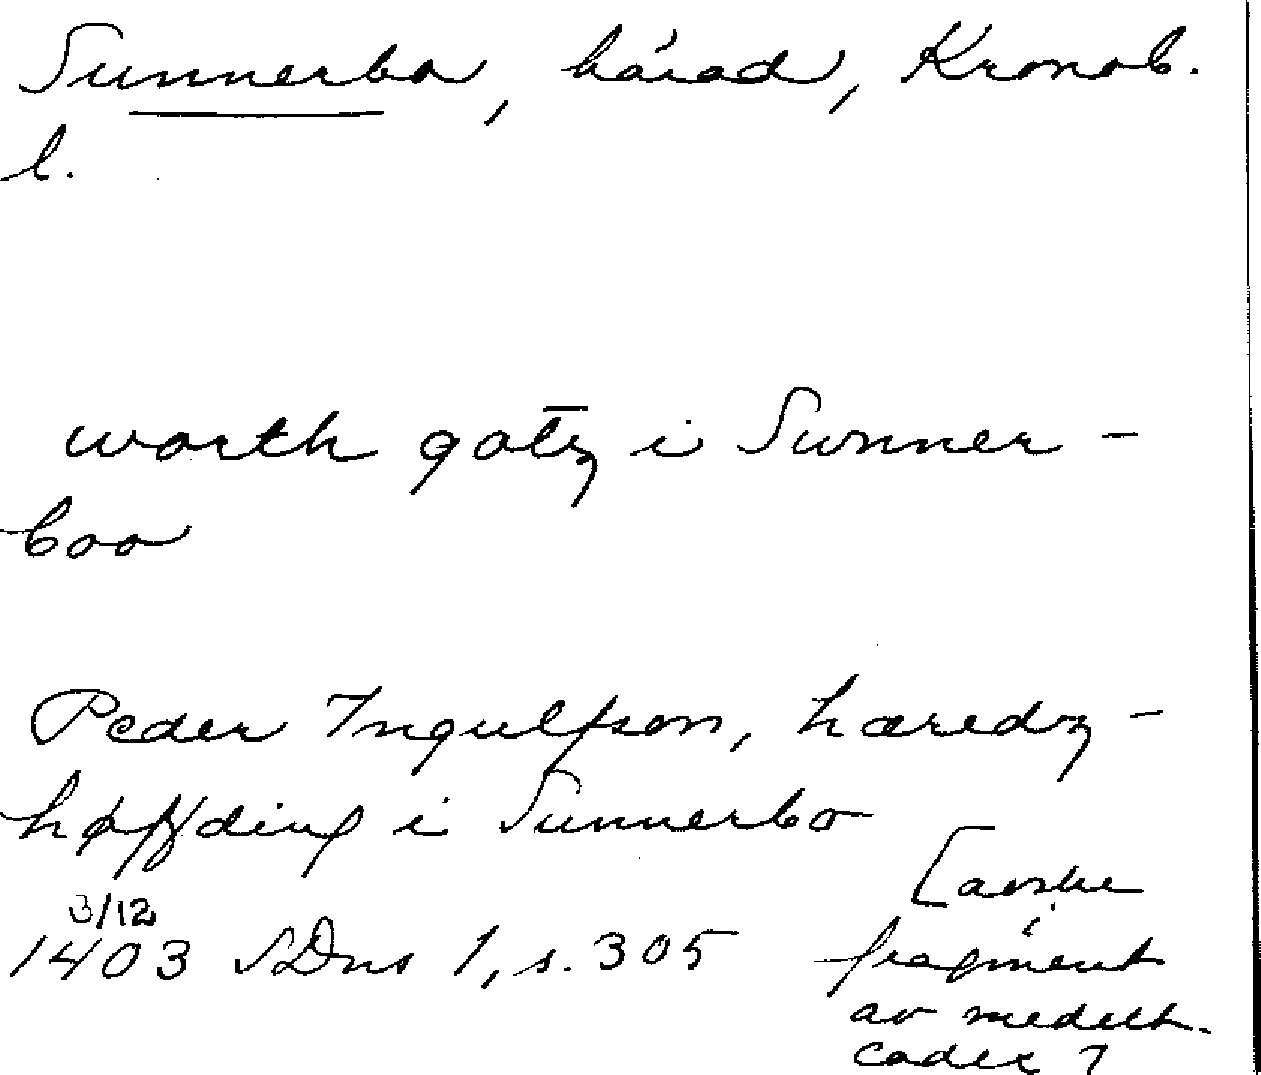 Sunnerbo, härad, Kronob.
l.
worth gotz i Sunner-
boo
Peder Ingulfson, hæredz-
høffding i Sunnerbo
3/12
1403 SDns 1, s. 305
[avskr. i
fragment
av medelt.
codex]